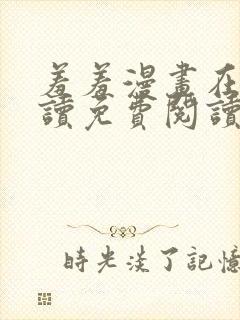 羞羞漫畫在
讀免費閱讀
時光淡了記憶